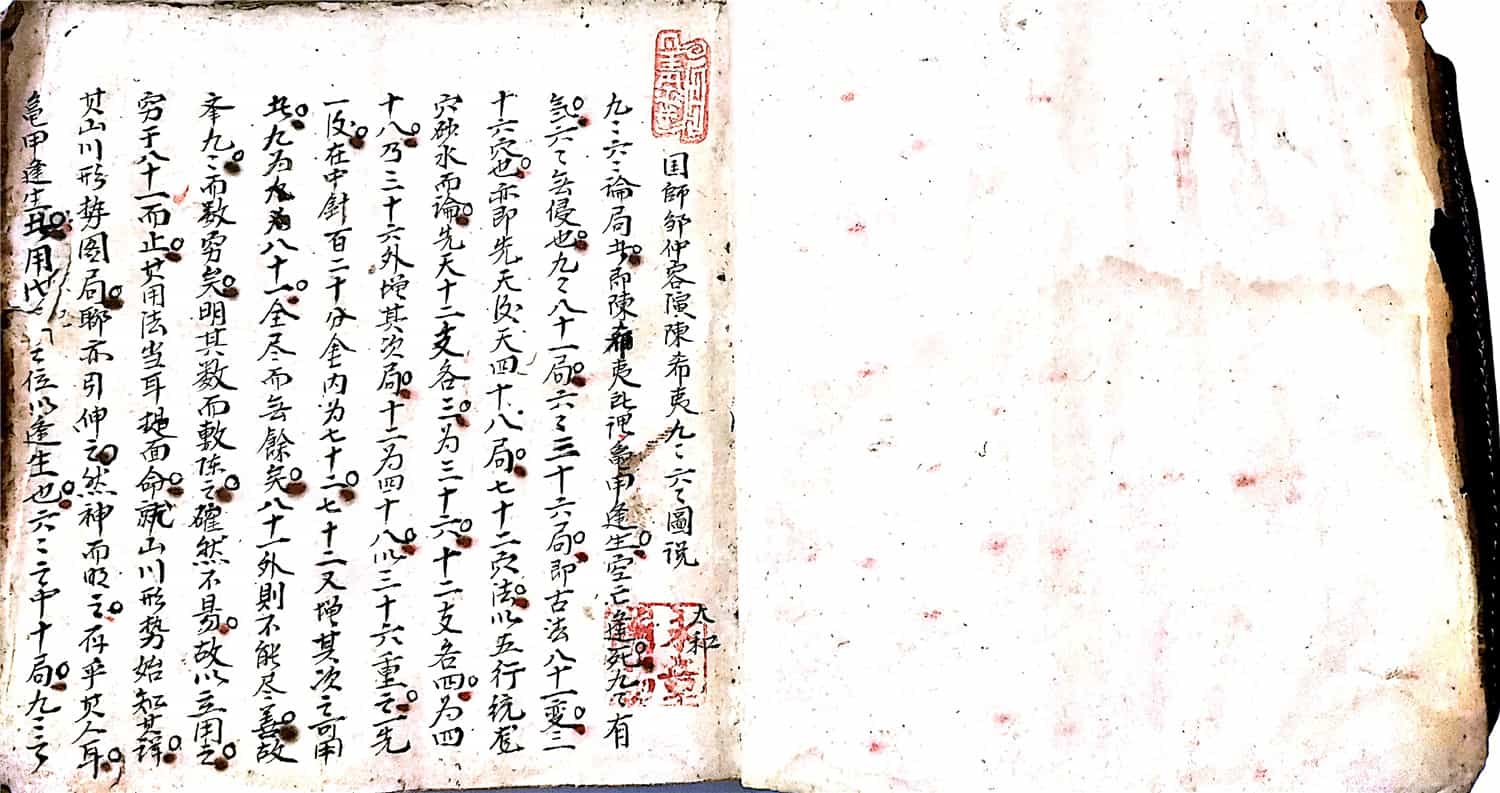 国師邹仲容演陳希夷九〻六〻圖说
太和
九〻六〻論局共即陳希夷
龟甲逢生空亡逢死九〻有
氣六〻無侵也九〻八十一局六〻三十六局即古法八十一变三
十六穴也亦即先天后天四十八局七十二穴法以五行統
穴砂水而論先天十二支各三为三十六十二支各四为四
十八乃三十六外增其次局十二为四十八以三十六重之一先
一后在中針百二十分金内为七十二七十二又增其次之可用
九为八十一全尽而無餘矣八十一外則不能尽善故
奉九〻而数穷矣明其数而敷陈之確然不易故以立用之
穷于八十一而止其用法当耳提面命就山川形势始知其詳
其山川形势圖局聊亦引伸之然神而明之存乎其人耳
龟甲逢生其用
之位以逢生也六〻之中十局九〻之